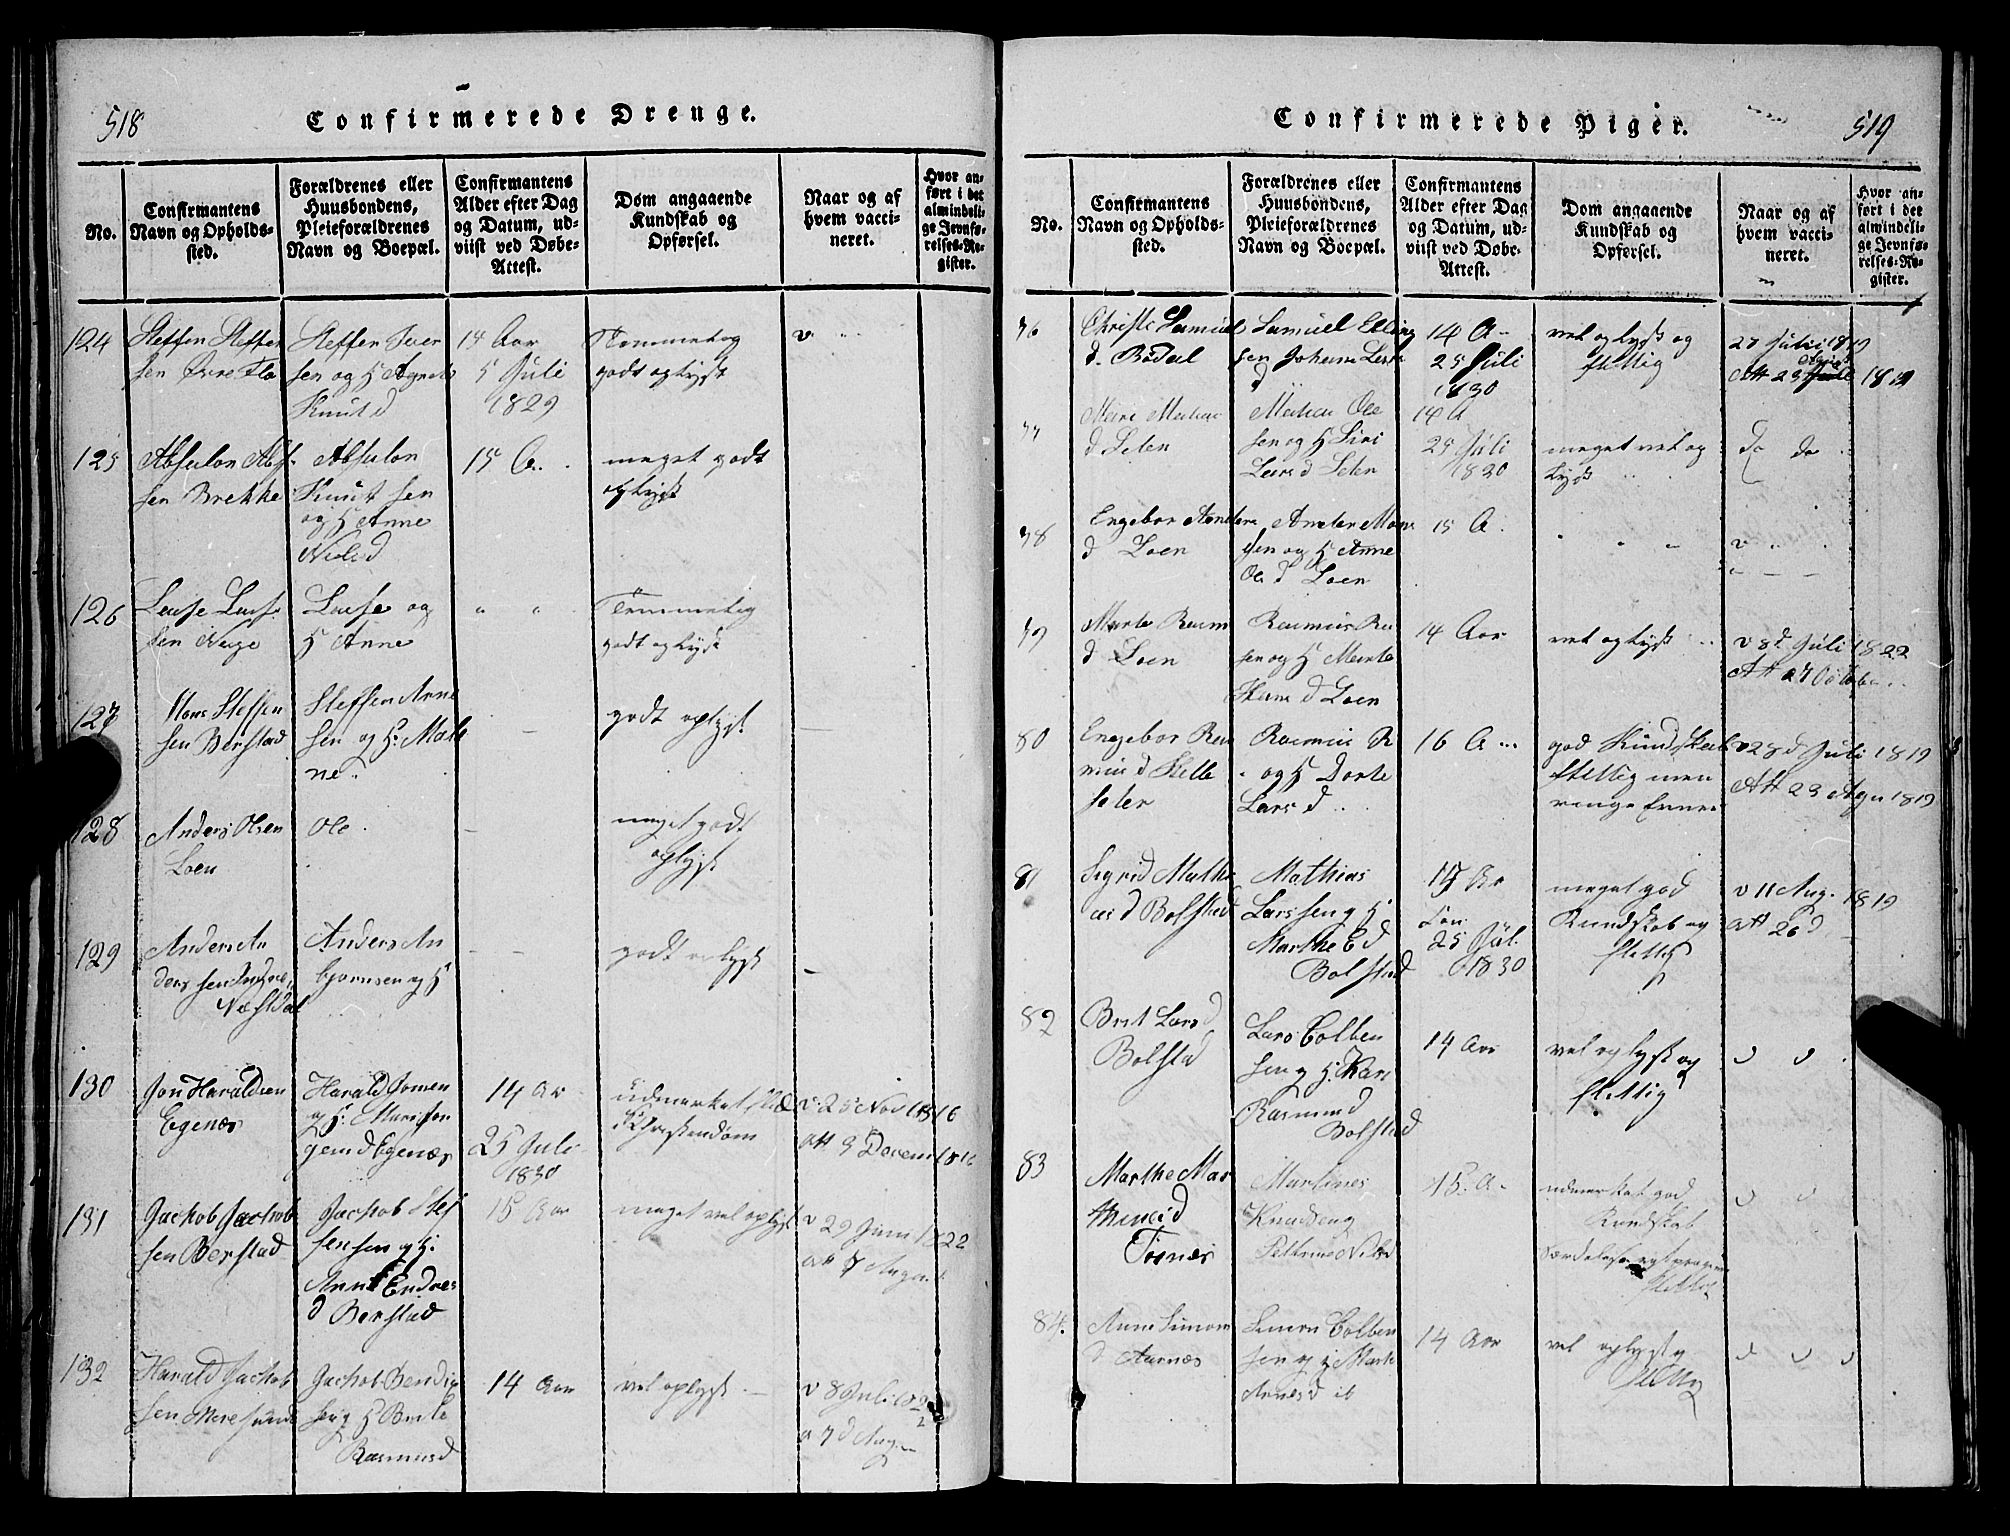 518
Confirmerede Drenge.
No.
Confirmantens
Navn og Opholds-
sted.
Forældrenes eller
Huusbondens,
Pleieforældrenes
Navn og Boepæl.
Confirmantens
Alder efter Dag
og Datum, ud-
viist ved Døbe-
Attest.
Dom angaaende
Kundskab og
Opførsel.
Naar og af
hvem vacci-
neret.
Hvor an-
ført i det
almindeli-
ge Jevnfø-
relses-Re-
gister.
124
Steffen Steffen
sen Øvre Flo
Steffen Iver
sen og H Agnete
Knut d
14 Aar
5 Juli
1829
Temmelig
godt oplyst
v
125
Absalon Abs
sen Brekke
Absalon
Knut sen
og H Anne
Niels d
15 A.
meget godt
oplyst
126
sen
og
H Anne
Temmelig
godt oplyst
127
Hans Steffen
sen Berstad
Steffen Arne
sen og H: Male
ne.
godt oplyst
128
Anders Olsen
Loen
Ole
meget godt
oplyst
129
Anders An
ders sen Indre
Anders An
bjørnsen og H
godt oplyst
130
Jon Haraldsen
Egenæs
Harald Jonsen
og H: Mari
d Egenæs
14 Aar
25 Juli
1830
udmerket
i Christendom
v. 25 Nov 1816
att 3 Decem 1816
131
Jachob Jachob
sen Berstad
Jachob Stef
fensen og H:
Anne Endres
d Berstad
15 Aar
meget vel oplyst
v 29 Juni 1822
att 7 August
132
Harald Jachob
sen
Jachob Bendix
sen og H Brite
Rasmus d
14 Aar
vel oplyst
v 8 Juli 1822
a 7 d Aug
519
Confirmerede Piger.
No.
Confirmantens
Navn og Opholds-
sted.
Forældrenes eller
Huusbondens,
Pleieforældrenes
Navn og Boepæl.
Confirmantens
Alder efter Dag
og Datum, ud-
viist ved Døbe-
Attest.
Dom angaaende
Kundskab og
Opførsel.
Naar og af
hvem vacci-
neret.
Hvor an-
ført i det
almindeli-
ge Jevnfø-
relses-Re-
gister.
76
Christi Samuel
d. Bødal
Samuel Elling
sen Johane Lars
d
14 A
25 Juli
1830
vel oplyst og
flittig
27 Juli 1819
Att 23 August 1819
77
d Seten
Ole
sen og H Siri
Lars d Seten
14 A
25 Juli
1830
meget vel op
lyst
do do
78
Engebor Anders
d Loen
Anders Mons
sen og H Anne
Ole d Loen
15 A.
v
79
Marte Rasm
d Loen
Rasmus Ra
sen og H Marte
d Loen
14 Aar
vel oplyst
v 8d Juli 1822
Att 27 October
80
Engebor Ras
mus d
Rasmus R
og H Dorte
Lars d
16 A
god Kundskab
flittig men
ringe
v 28 d Juli 1819
Att 23 Agu 1819
81
Sigrid Mathi
as d Bolstad
Mathias
Larssen og H
Marthe E d
Bolstad
14 Aar
Con:
25 Jul.
1830
meget god
Kundskab og
flittig
v 11 Aug. 1819
att 26 d
82
Brit Lars d
Bolstad
Lars Colben
sen og H. Kari
Rasmus d
Bolstad
14 Aar
vel oplyst og
flittig
v v
83
Marthe Mar
thines d
Tisnæs
Martines
Knudsen og
Pettrine Niels d
15. A.
udmerket god
Kundskab
v v
84.
Anne Simons
d Aarnæs
Simon Colben
sen og H Marte
Arnes d ib
14 Aar
vel oplyst og
flittig
v v v